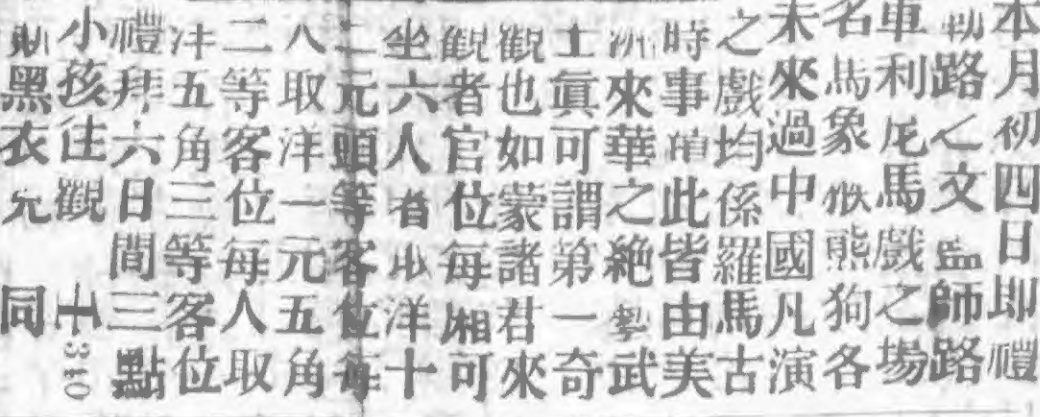 本月初四日即禮
路之文監師路
車利尼馬戲之場
名馬象猴熊狗各
未來過中國凡演
之戲均係羅馬古
時事蹟此皆由美
洲來華之絶藝武
士眞可謂第一奇
觀也如蒙諸君來
觀者官位每厢可
坐六人者取洋十
二元頭等客位每
人取洋一元五角
二等客位每人取
洋五角三等客位
禮拜六日間三點
小孩往觀 十340
黑衣 同